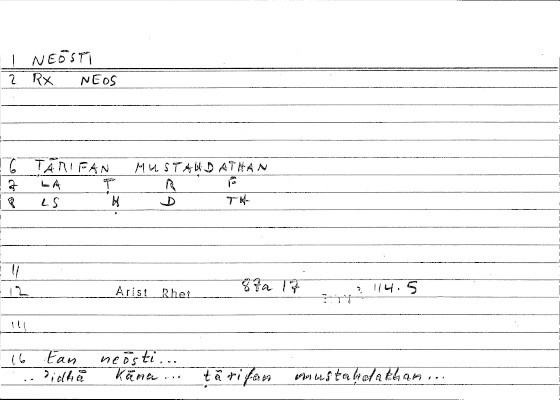 1 NEŌSTI
2 RX NEOS
6 ṬĀRIFAN MUSTAḤDATHAN
7 LA Ṭ R F
8 LS Ḥ D TH
11
12 Arist Rhet 87a 17 114.5
16 Ean neōsti...
..ʾidhā kāna... ṭārifan mustaḥdathan...